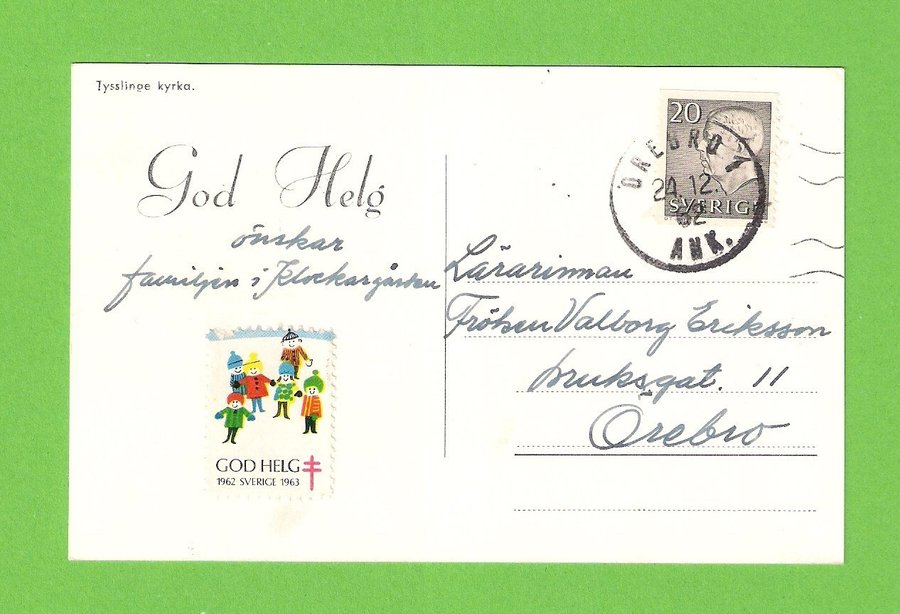 Tysslinge kyrka.
God Helg
önskar
familjen i Klockargården
GOD HELG
1962 SVERIGE 1963
20
SVERIGE
ÖREBRO 1
24.12.
62
ANK.
Lärarinnan
Fröken Valborg Eriksson
bruksgat. 11
Örebro